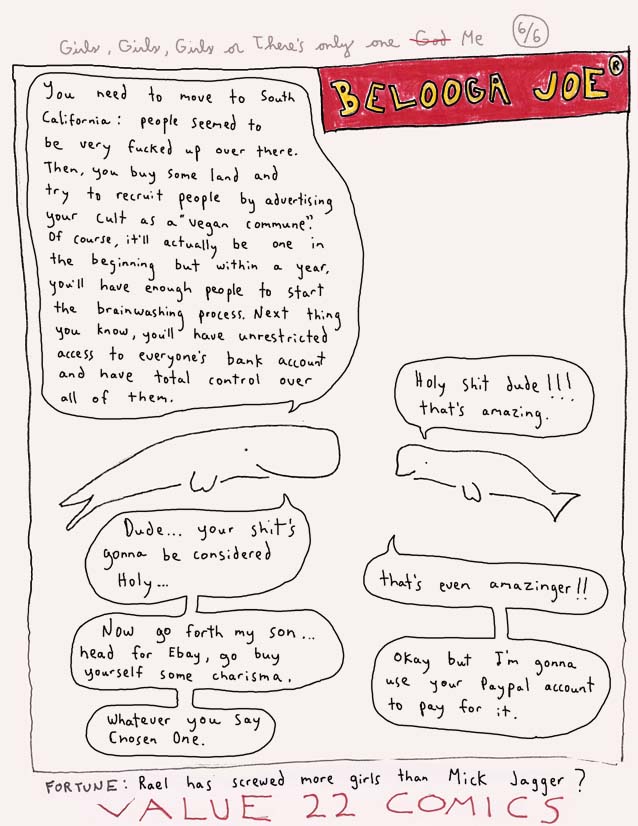 Girls, Girls, Girls or There's only one God Me
6/6
BELOOGA JOE®
You need to move to South
California: people seemed to
be very fucked up over there.
Then, you buy some land and
try to recruit people by advertising
your cult as a "vegan commune".
Of course, it'll actually be one in
the beginning but within a year,
you'll have enough people to start
the brainwashing process. Next thing
you know, you'll have unrestricted
access to everyone's bank account
and have total control over
all of them.
Holy shit dude!!!
that's amazing.
Dude... your shit's
gonna be considered
Holy...
that's even amazinger!!
Now go forth my son...
head for Ebay, go buy
yourself some charisma.
okay but I'm gonna
use your Paypal account
to pay for it.
Whatever you say
Chosen One.
FORTUNE: Rael has screwed more girls than Mick Jagger?
VALUE 22 COMICS